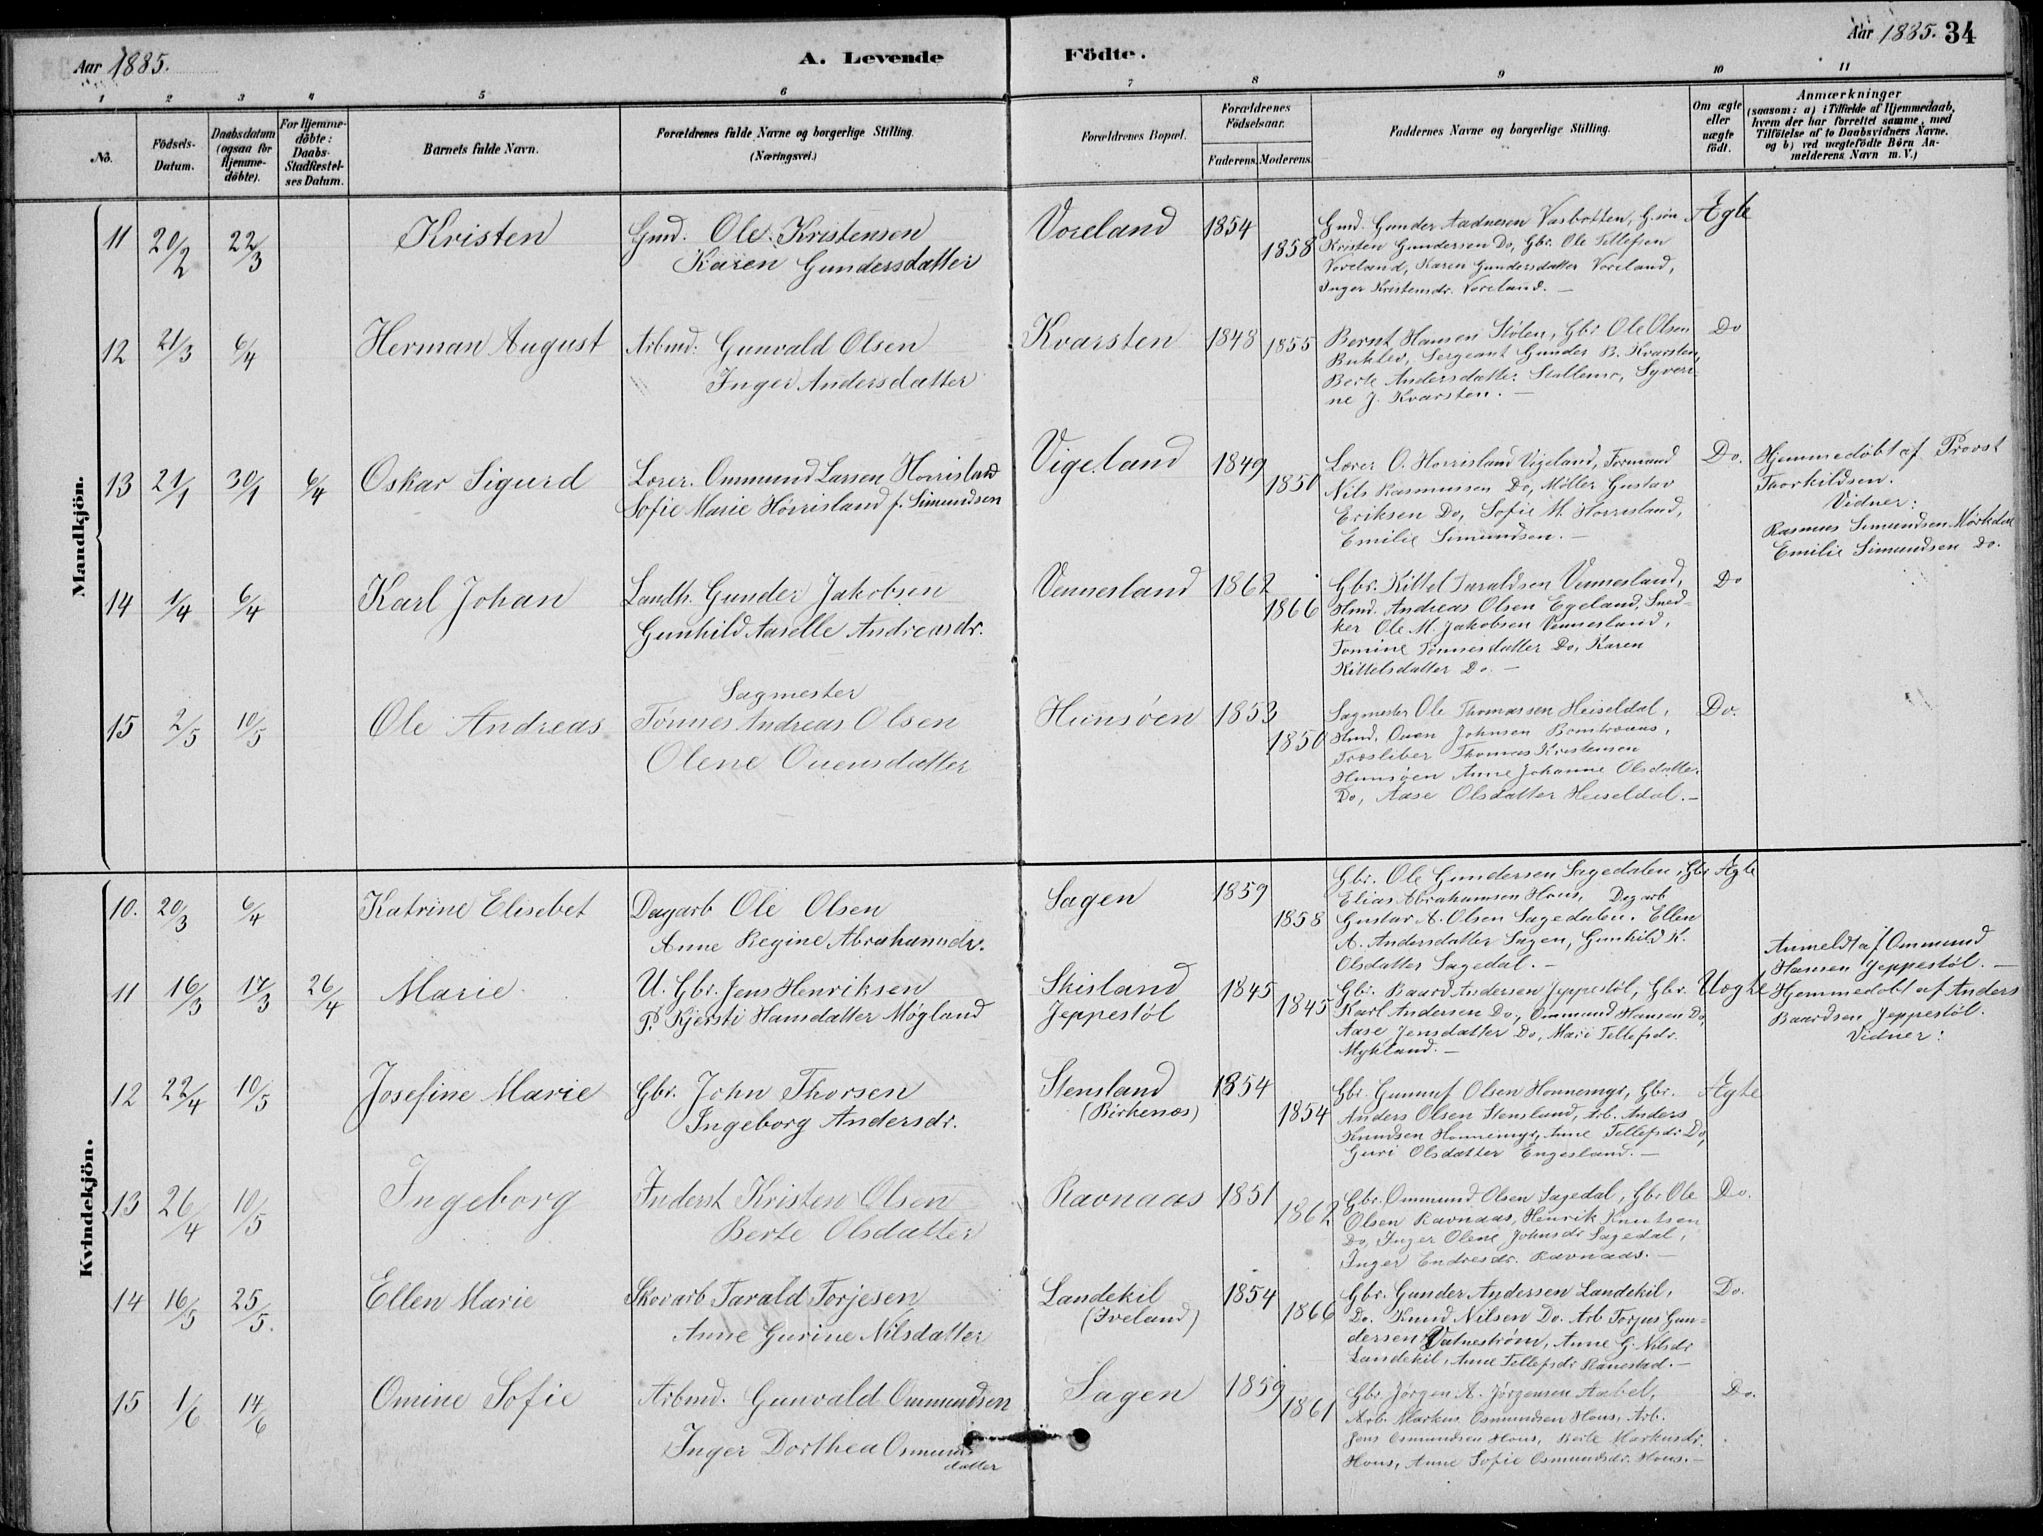 Aar 1885.
A. Levende Födte.
Aar 1885. 34
1 2 3 4 5 6 7 8 9 10 11
No.
Födsels-Datum.
Daabsdatum (ogsaa for Hjemme-döbte).
For Hjemme-döbte: Daabs-Stadfæstel-ses Datum.
Barnets fulde Navn.
Forældrenes fulde Navne og borgerlige Stilling.
(Næringsvei.)
Forældrenes Bopæl.
Forældrenes Födselsaar.
Faderens. Moderens.
Faddernes Navne og borgerlige Stilling.
Om ægte eller uægte födt.
Anmærkninger
(saasom: a) i Tilfælde af Hjemmedaab,
hvem der har forrettet samme, med
Tilföielse af to Daabsvidners Navne.
og b) ved uægtefödte Börn An-
melderens Navn m. V.)
Mandkjön.
11 20/2 22/3 Kristen
Gmd. Ole Kristensen
Karen Gundersdatter
Voreland 1854 1858
Gmd. Gunder Aadnesen Vasbotten, G. søn
Kristen Gundersen Do, Gbr. Ole Tellefsen
Voreland, Karen Gundersdatter Voreland,
Inger Kristensdr. Voreland. —
Ægte
12 21/3 6/4 Herman August
Arbmd. Gunvald Olsen
Inger Andersdatter
Kvarsten 1848 1855
Bernt Hansen Stølen, Gbr Ole Olsen
Buklev, Sergeant Gunder B. Kvarsten,
Berte Andersdatter Stallemo, Syveri-
ne J. Kvarsten. —
Do
13 21/1 30/1 6/4 Oskar Sigurd
Lærer. Ommund Larsen Horrisland
Sofie Marie Hørrisland f. Simundsen
Vigeland 1849 1850
Lærer O. Horrisland Vigeland, Formand
Nils Rasmussen Do, Møller Gustav
Eriksen Do, Sofie M. Horrisland,
Emilie Simundsen. —
Do.
Hjemmedøbt af Provst
Thorkildsen.
Vidner:
Rasmus Simundsen Mørkdal
Emilie Simundsen Do.
14 1/4 6/4 Karl Johan
Landh. Gunder Jakobsen
Gunhild Aaselle Andreasdr.
Vennesland 1862 1866
Gbr. Kittel Taraldsen Vennesland,
Hmd. Andreas Olsen Egeland, Sned-
ker Ole M. Jakobsen Vennesland,
Tomine Tønnesdatter Do, Karen
Kittelsdatter Do. —
Do
15 2/5 10/5 Ole Andreas
Sagmester
Tønnes Andreas Olsen
Olene Ouensdatter
Hunsøen 1853 1850
Sagmester Ole Thomassen Heiseldal,
Hmd. Ouen Johnsen
Træsliber Thomas Kristensen
Hunsøen Anne Johanne Olsdatter
Do, Aase Olsdatter Heiseldal. —
Do.
Kvindekjön.
10. 20/3 6/4 Katrine Elisebet
Dagarb Ole Olsen
Anne Regine Abrahamsdr.
Sagen 1859 1858
Gbr. Ole Gundersen Sagedalen, Gbr
Elias Abrahamsen Hous, Dagarb
Gustav A. Olsen Sagedalen. Ellen
A. Andersdatter Sagen, Gunhild K.
Olsdatter Sagedal. —
Ægte
11 16/3 17/3 26/4 Marie
U. Gbr. Jens Henriksen
P. Kjersti Hansdatter Møgland
Skisland
Jeppestøl
1845 1845
Gbr. Baard Andersen Jeppestøl, Gbr.
Karl Andersen Do, Ommund Hansen Do,
Aase Jensdatter Do, Mari Tellefsdr.
Mykland. —
Uægte
Anmeldt af Ommund
Hansen Jeppestøl. —
Hjemmedøbt af Anders
Baardsen Jeppestøl.
Vidner:
12 22/4 10/5 Josefine Marie
Gbr. John Thorsen
Ingeborg Andersdr.
Stensland
(Birkenes)
1854 1854
Gbr. Gunnuf Olsen Honnemyr, Gbr.
Anders Olsen Stensland, Arb. Anders
Knudsen Honnemyr, Anne Tellefsdr Do,
Guri Olsdatter Engesland. —
Ægte
13 26/4 10/5 Ingeborg
Inderst Kristen Olsen
Berte Olsdatter
Ravnaas 1851 1862
Gbr. Ommund Olsen Sagedal, Gbr Ole
Olsen Ravnaas, Henrik Knutsen
Do, Inger Olene Johnsdr Sagedal,
Inger Endresdr. Ravnaas. —
Do.
14 16/5 25/5. Ellen Marie
Skovarb Tarald Torjesen
Anne Gurine Nilsdatter
Landekil
(Iveland)
1854 1866
Gbr. Gunder Anderssen Landekil,
Do. Knud Nilsen Do. Arb Torjus Gun-
dersen Vatnestrøm, Anne G. Nilsdr
Landekil, Anne Tellefsdr Ranestad. —
Do.
15 1/6 14/6 Omine Sofie
Arbmd. Gunvald Ommundsen
Inger Dorthea Osmunds
datter
Sagen 1859 1861
Gbr. Jørgen A. Jørgensen Aabel,
Arb. Markus Osmundsen Hous, Arb.
Jens Osmundsen Hous, Berte Markusdr.
Hous, Anne Sofie Osmundsdr. Hous. —
Do.